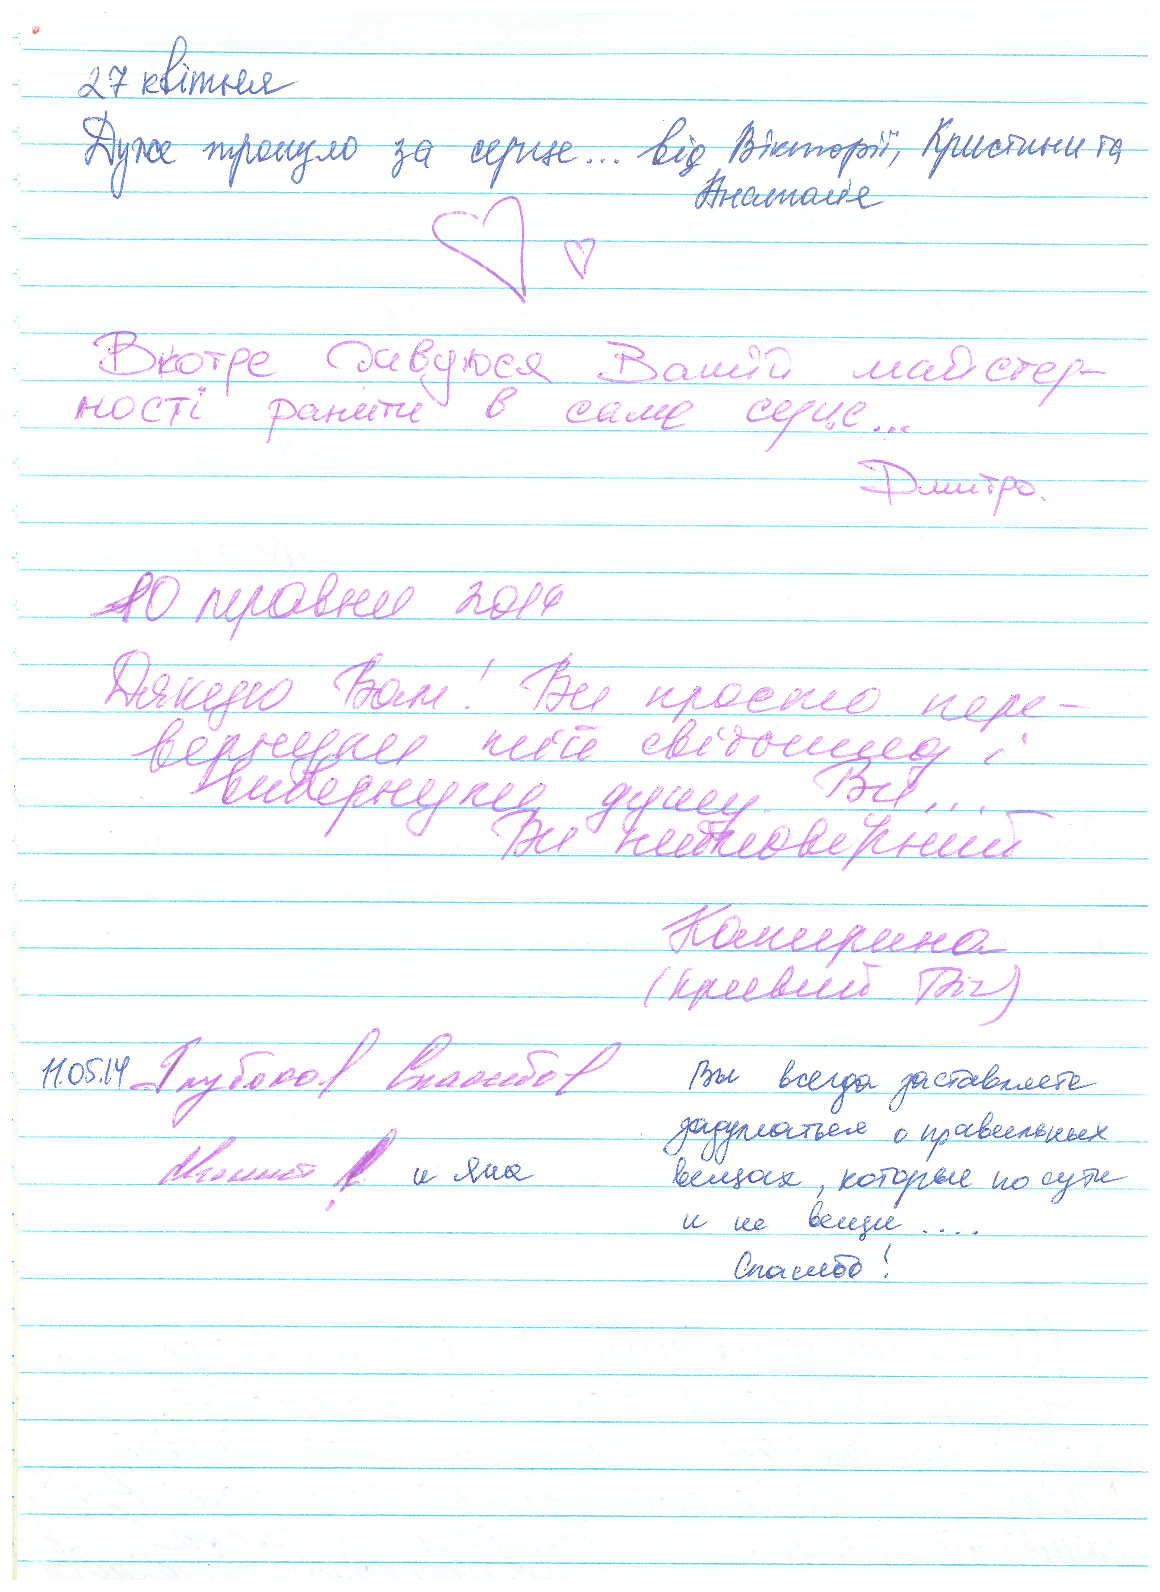 27 квітня
Дуже тронуло за серце... від Вікторії, Кристини та
Вкотре дивуюся Вашій майстер-
ності ранити в саме серце...
Дмитро.
10 травня 2014
Дякую Вам! Ви просто пере-
вернули мій світогляд і
вивернули душу. Ви...
Ви неймовірний
Катерина
(Кривий Ріг)
11.05.14 Глубокое Спасибо
и Яна
Вы всегда заставляете
задуматься о правильных
вещах, которые по сути
и не вещи ....
Спасибо!